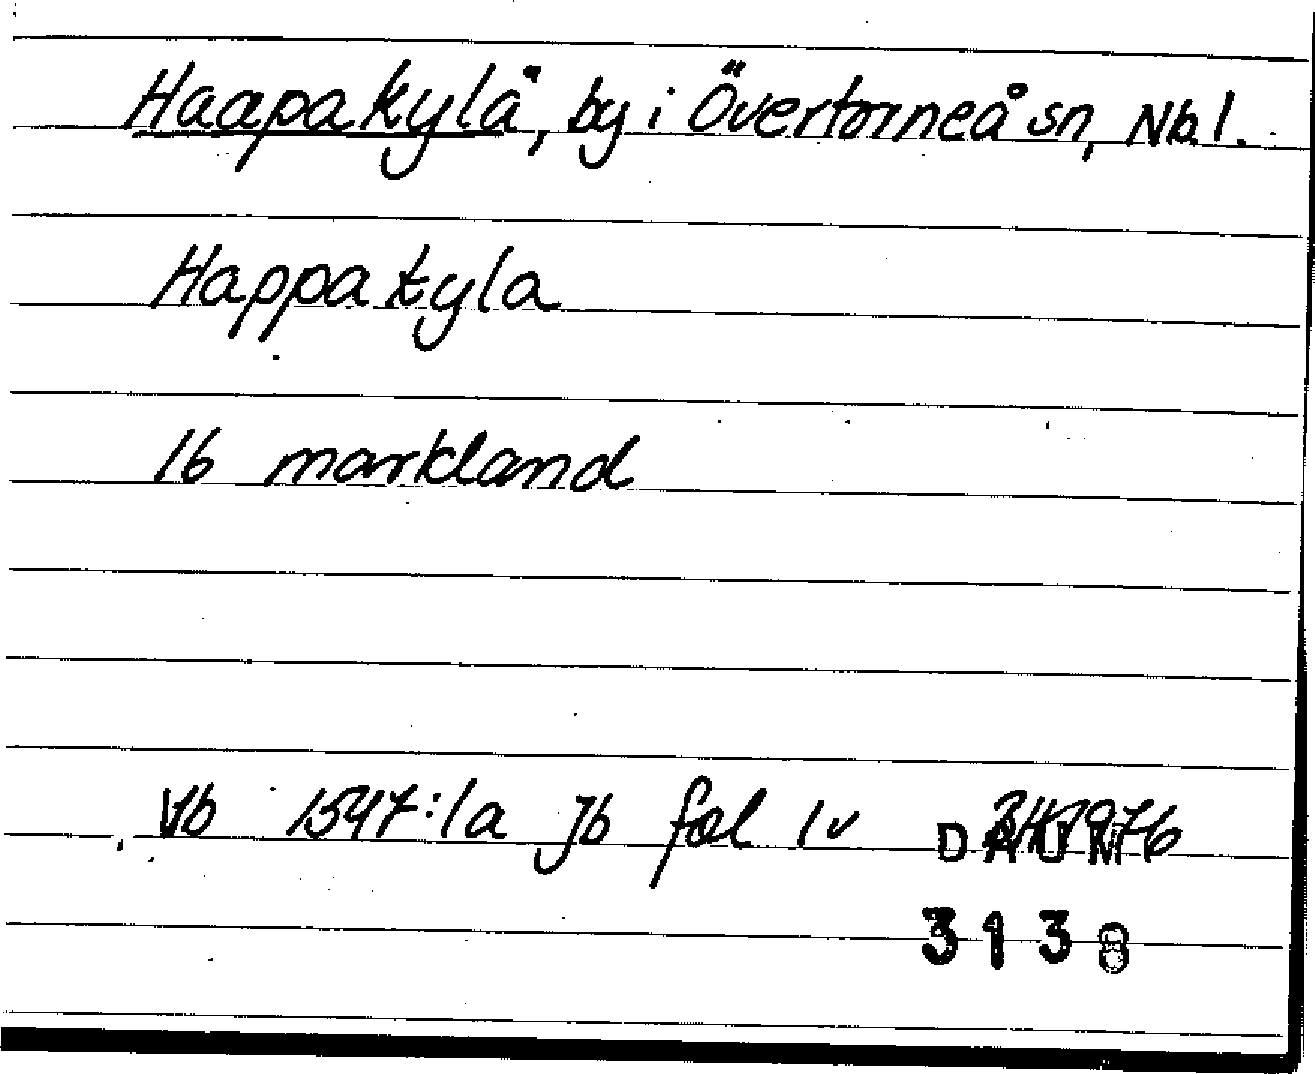 Haapakylä, by i Övertorneå sn, Nb l.
Happakyla
16 markland
Vb 1547:1a jb fol 1v 1976
DAUM
3138